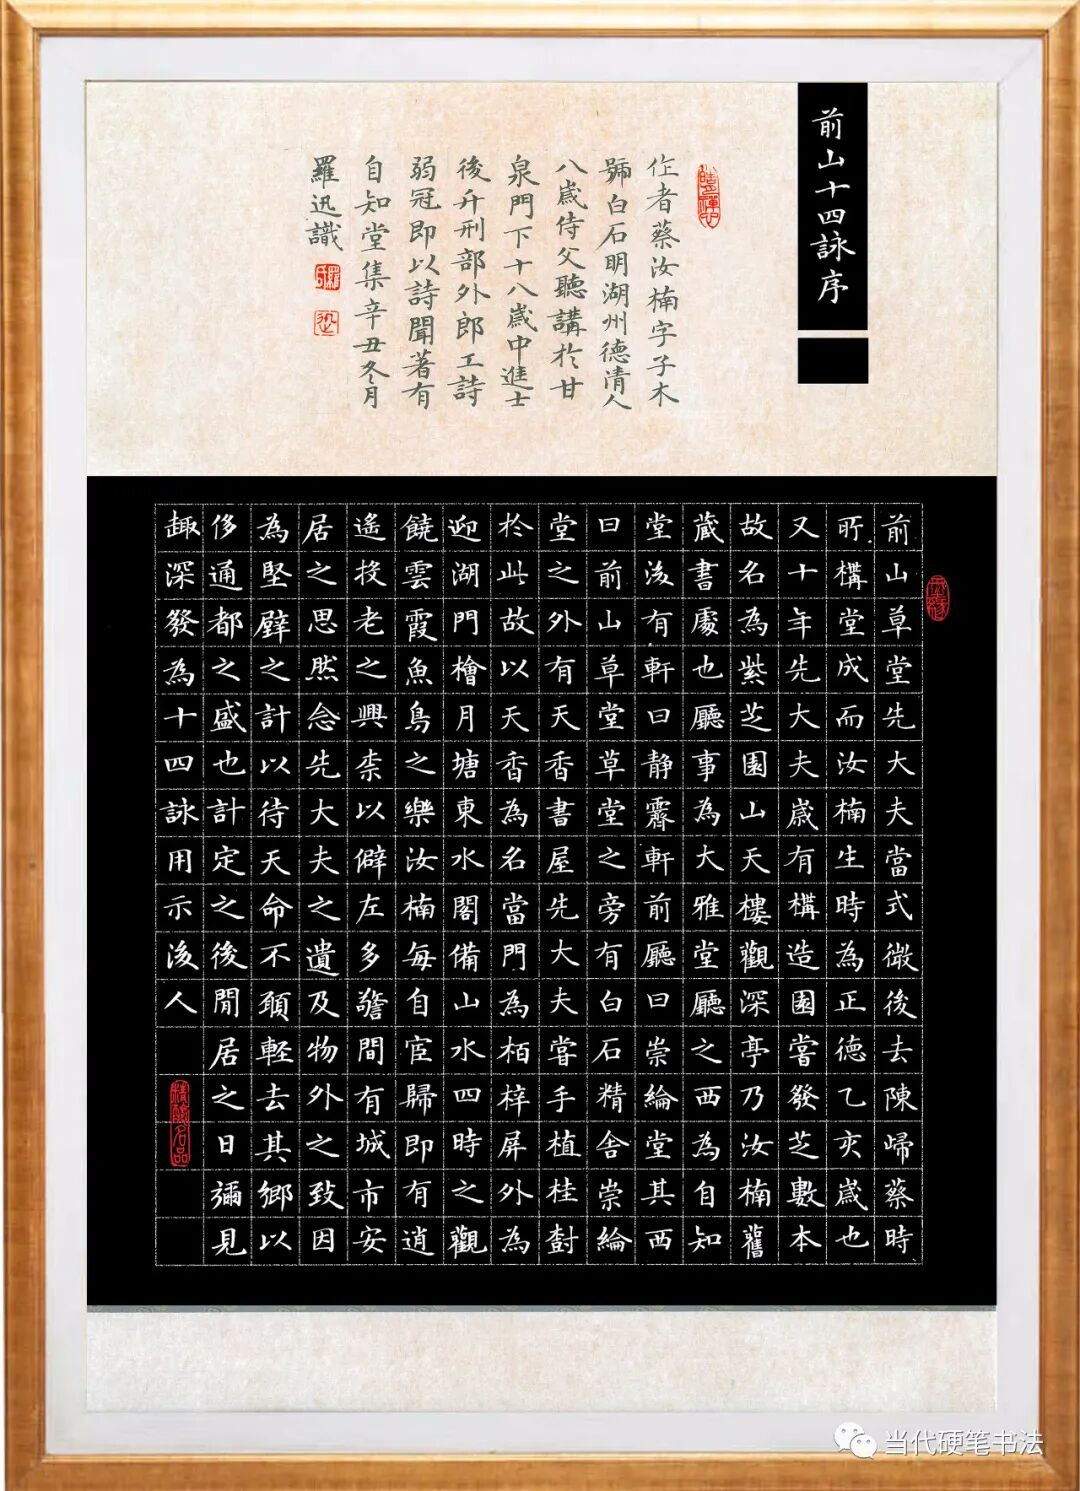 前山十四詠序
作者蔡汝楠字子木
號白石明湖州德清人
八歲侍父聽講於甘
泉門下十八歲中進士
後升刑部外郎工詩
弱冠即以詩聞著有
自知堂集辛丑冬月
羅迅識
前山草堂先大夫當式微後去陳歸蔡時
所構堂成而汝楠生時為正德乙亥歲也
又十年先大夫歲有構造園嘗發芝數本
故名為紫芝園山天樓觀深亭乃汝楠舊
藏書處也廳事為大雅堂廳之西為自知
堂後有軒曰静霽軒前廳曰崇綸堂其西
曰前山草堂草堂之旁有白石精舍崇綸
堂之外有天香書屋先大夫嘗手植桂樹
於此故以天香為名當門為栢梓屏外為
迎湖門檜月塘東水閣備山水四時之觀
饒雲霞魚鳥之樂汝楠每自宦歸即有逍
遙投老之興柰以僻左多警間有城市安
居之思然念先大夫之遺及物外之致因
為堅壁之計以待天命不頭輕去其鄉以
侈通都之盛也計定之後閒居之日彌見
趣深發為十四詠用示後人
精微名品
当代硬笔书法